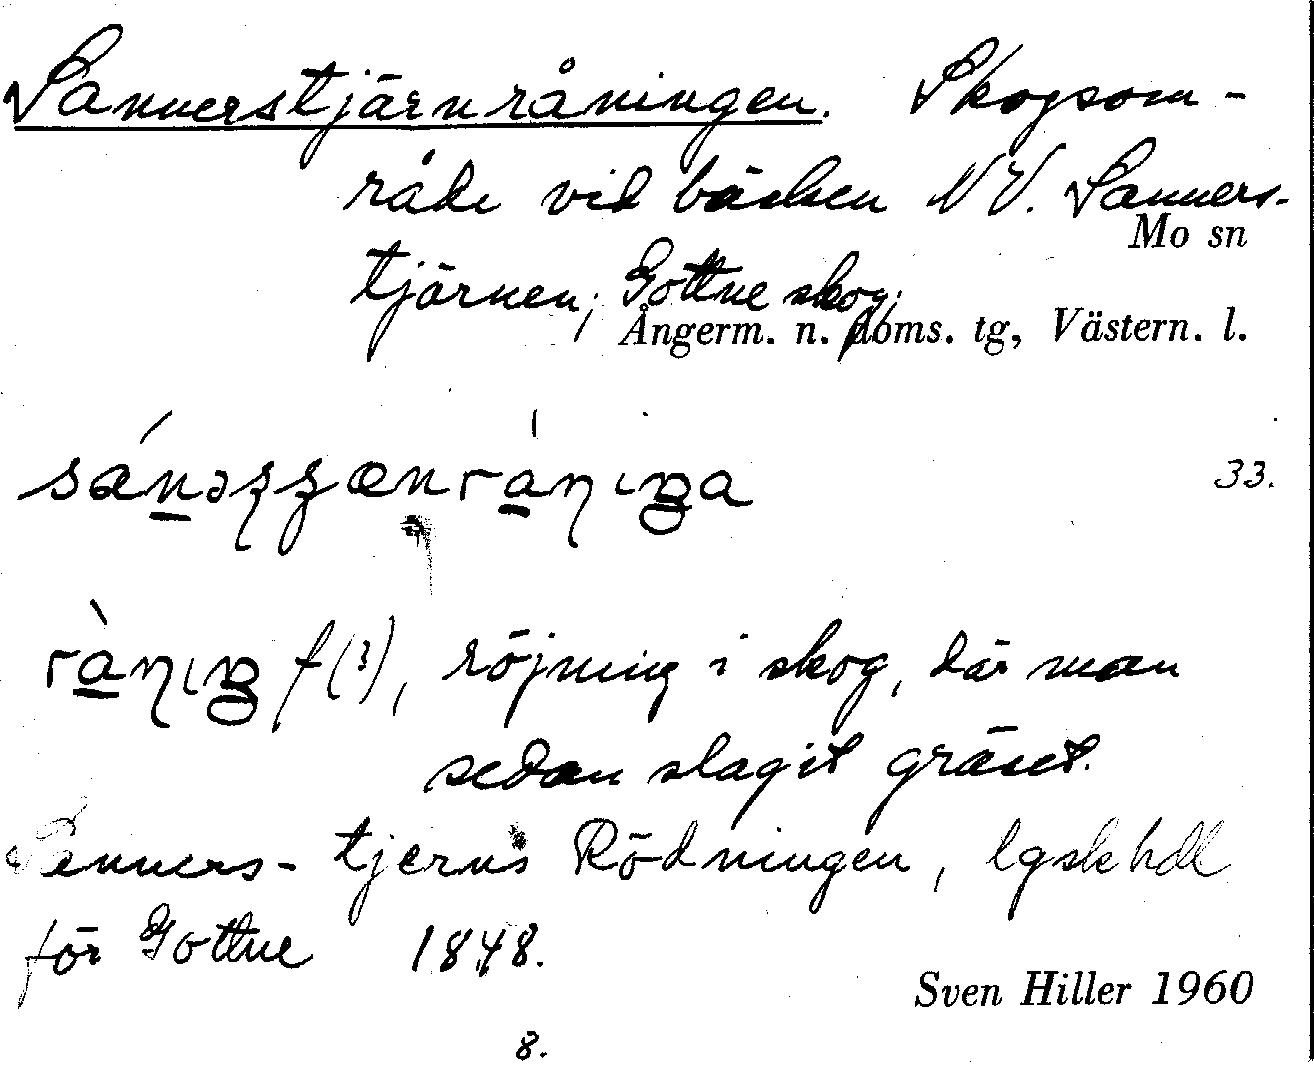 Sannerstjärnråningen. Skogsom-
råde vid bäcken NV. Sanners-
Mo sn
tjärnen; Gottne skog;
Ångerm. n. doms. tg, Västern. l.
33.
f(?), röjning i skog, där man
sedan slagit gräset.
Senners-tjerns Rödningen, lgskhdl
för Gottne 1848.
Sven Hiller 1960
8.